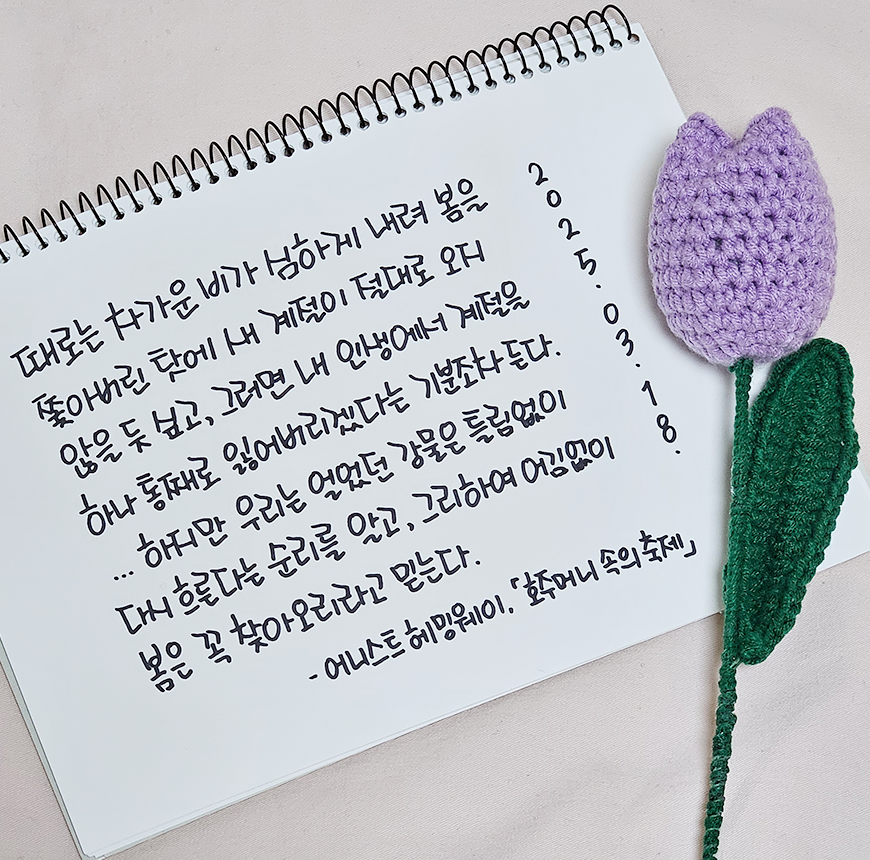 때로는 차가운 비가 심하게 내려 봄을
쫓아버린 탓에 내 계절이 절대로 오지
않을 듯 싶고, 그러면 내 인생에서 계절을
하나 통째로 잃어버리겠다는 기분조차 든다.
... 하지만 우리는 얼었던 강물은 틀림없이
다시 흐른다는 순리를 알고, 그리하여 어김없이
봄은 꼭 찾아오리라고 믿는다.
- 어니스트 헤밍웨이, 「호주머니 속의 축제」
2025.03.18.